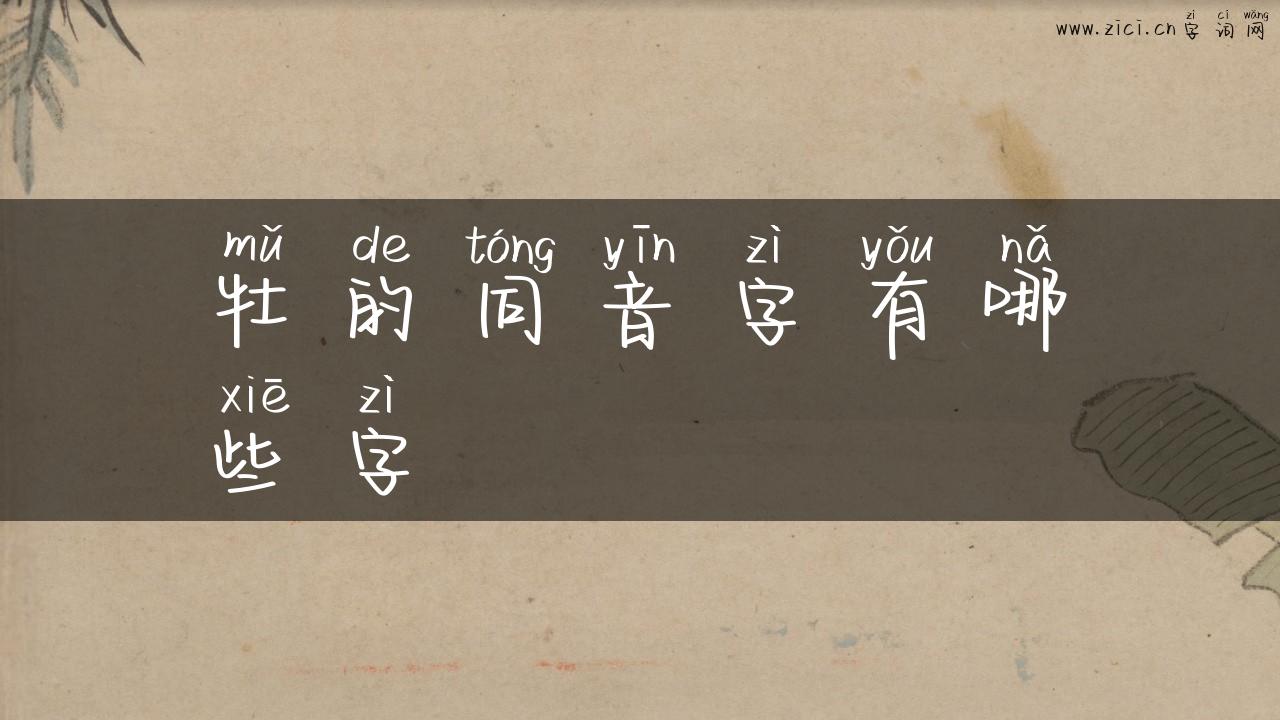 zì cí wǎng
www.zici.cn 字 词 网
mǔ de tóng yīn zì yǒu nǎ
牡 的 同 音 字 有 哪
xiē zì
些 字